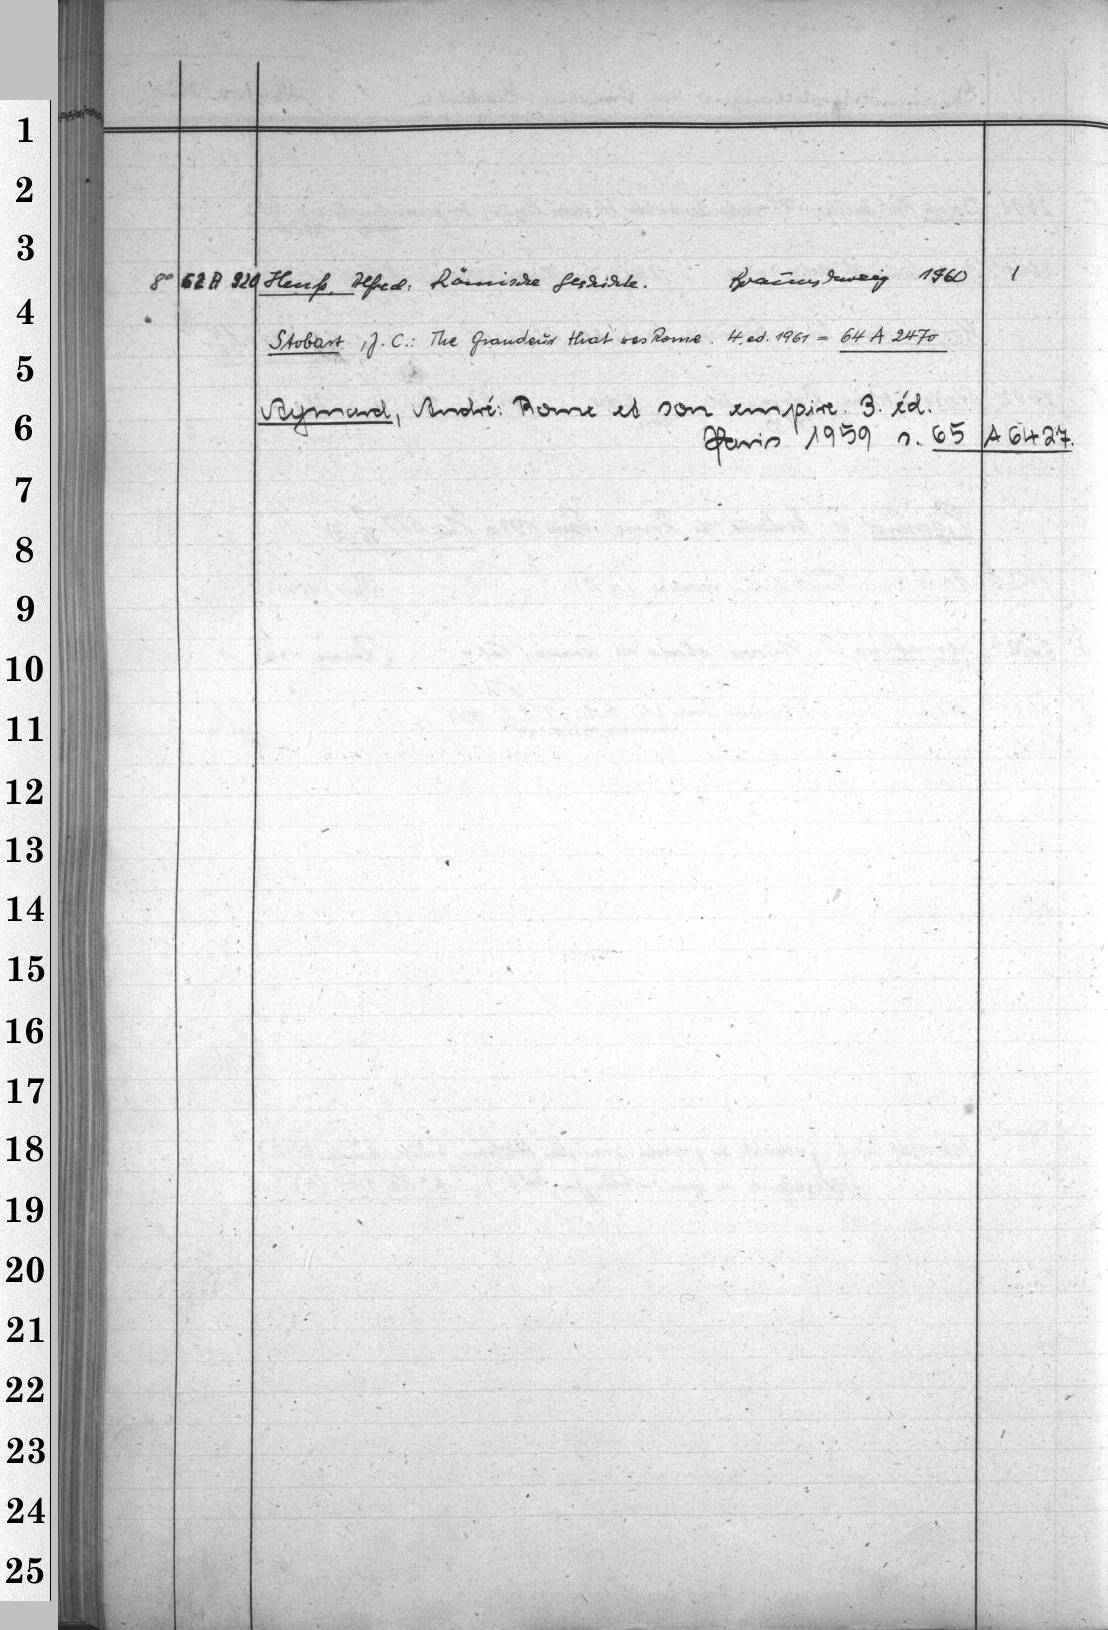 1
2
3
8° 62 A 920 Heuß, Alfred: Römische Geschichte. Braunschweig 1960 1
4
Stobart, J. C.: The Grandeur that was Rome. 4. ed. 1961 = 64 A 2470
5
Aymard, André: Rome et son empire. 3. éd.
6
Paris 1959 s. 65 A 6427.
7
8
9
10
11
12
13
14
15
16
17
18
19
20
21
22
23
24
25